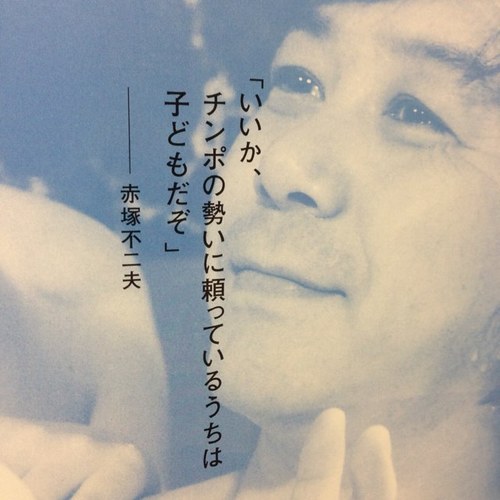 「いいか、
チンポの勢いに頼っているうちは
子どもだぞ」
――赤塚不二夫